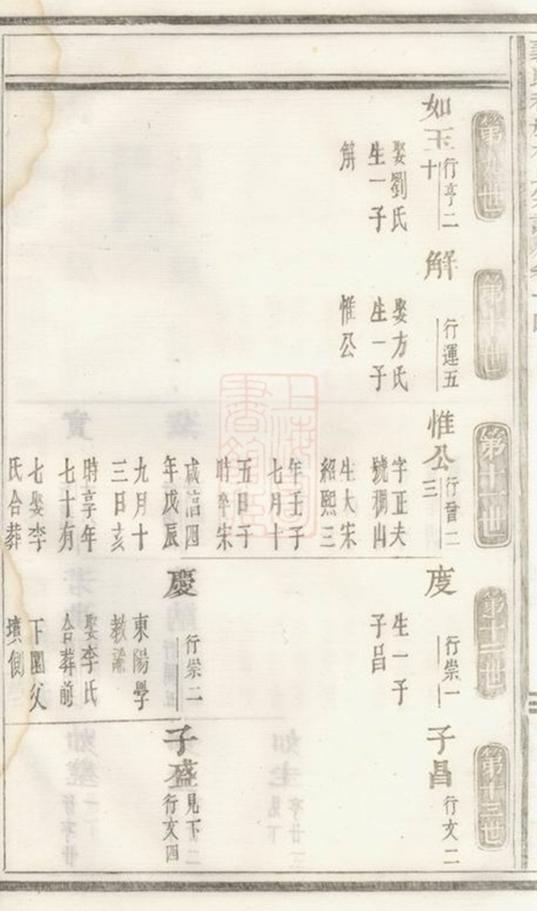 第九世
如玉
行亨二
十
娶劉氏
生一子
解
第十世
解
行運五
娶方氏
生一子
惟公
第十一世
惟公
行晉二
三
字正夫
號獨山
生大宋
紹熙三
年壬子
七月十
五日子
時卒宋
咸淳四
年戊辰
九月十
三日亥
時享年
七十有
七娶李
氏合葬
第十二世
度
行崇一
生一子
子昌
慶
行崇二
東陽學
教諭
娶李氏
合葬前
下園父
墳側
第十三世
子昌
行文二
子盛
見下
行文四
上海圖書館藏